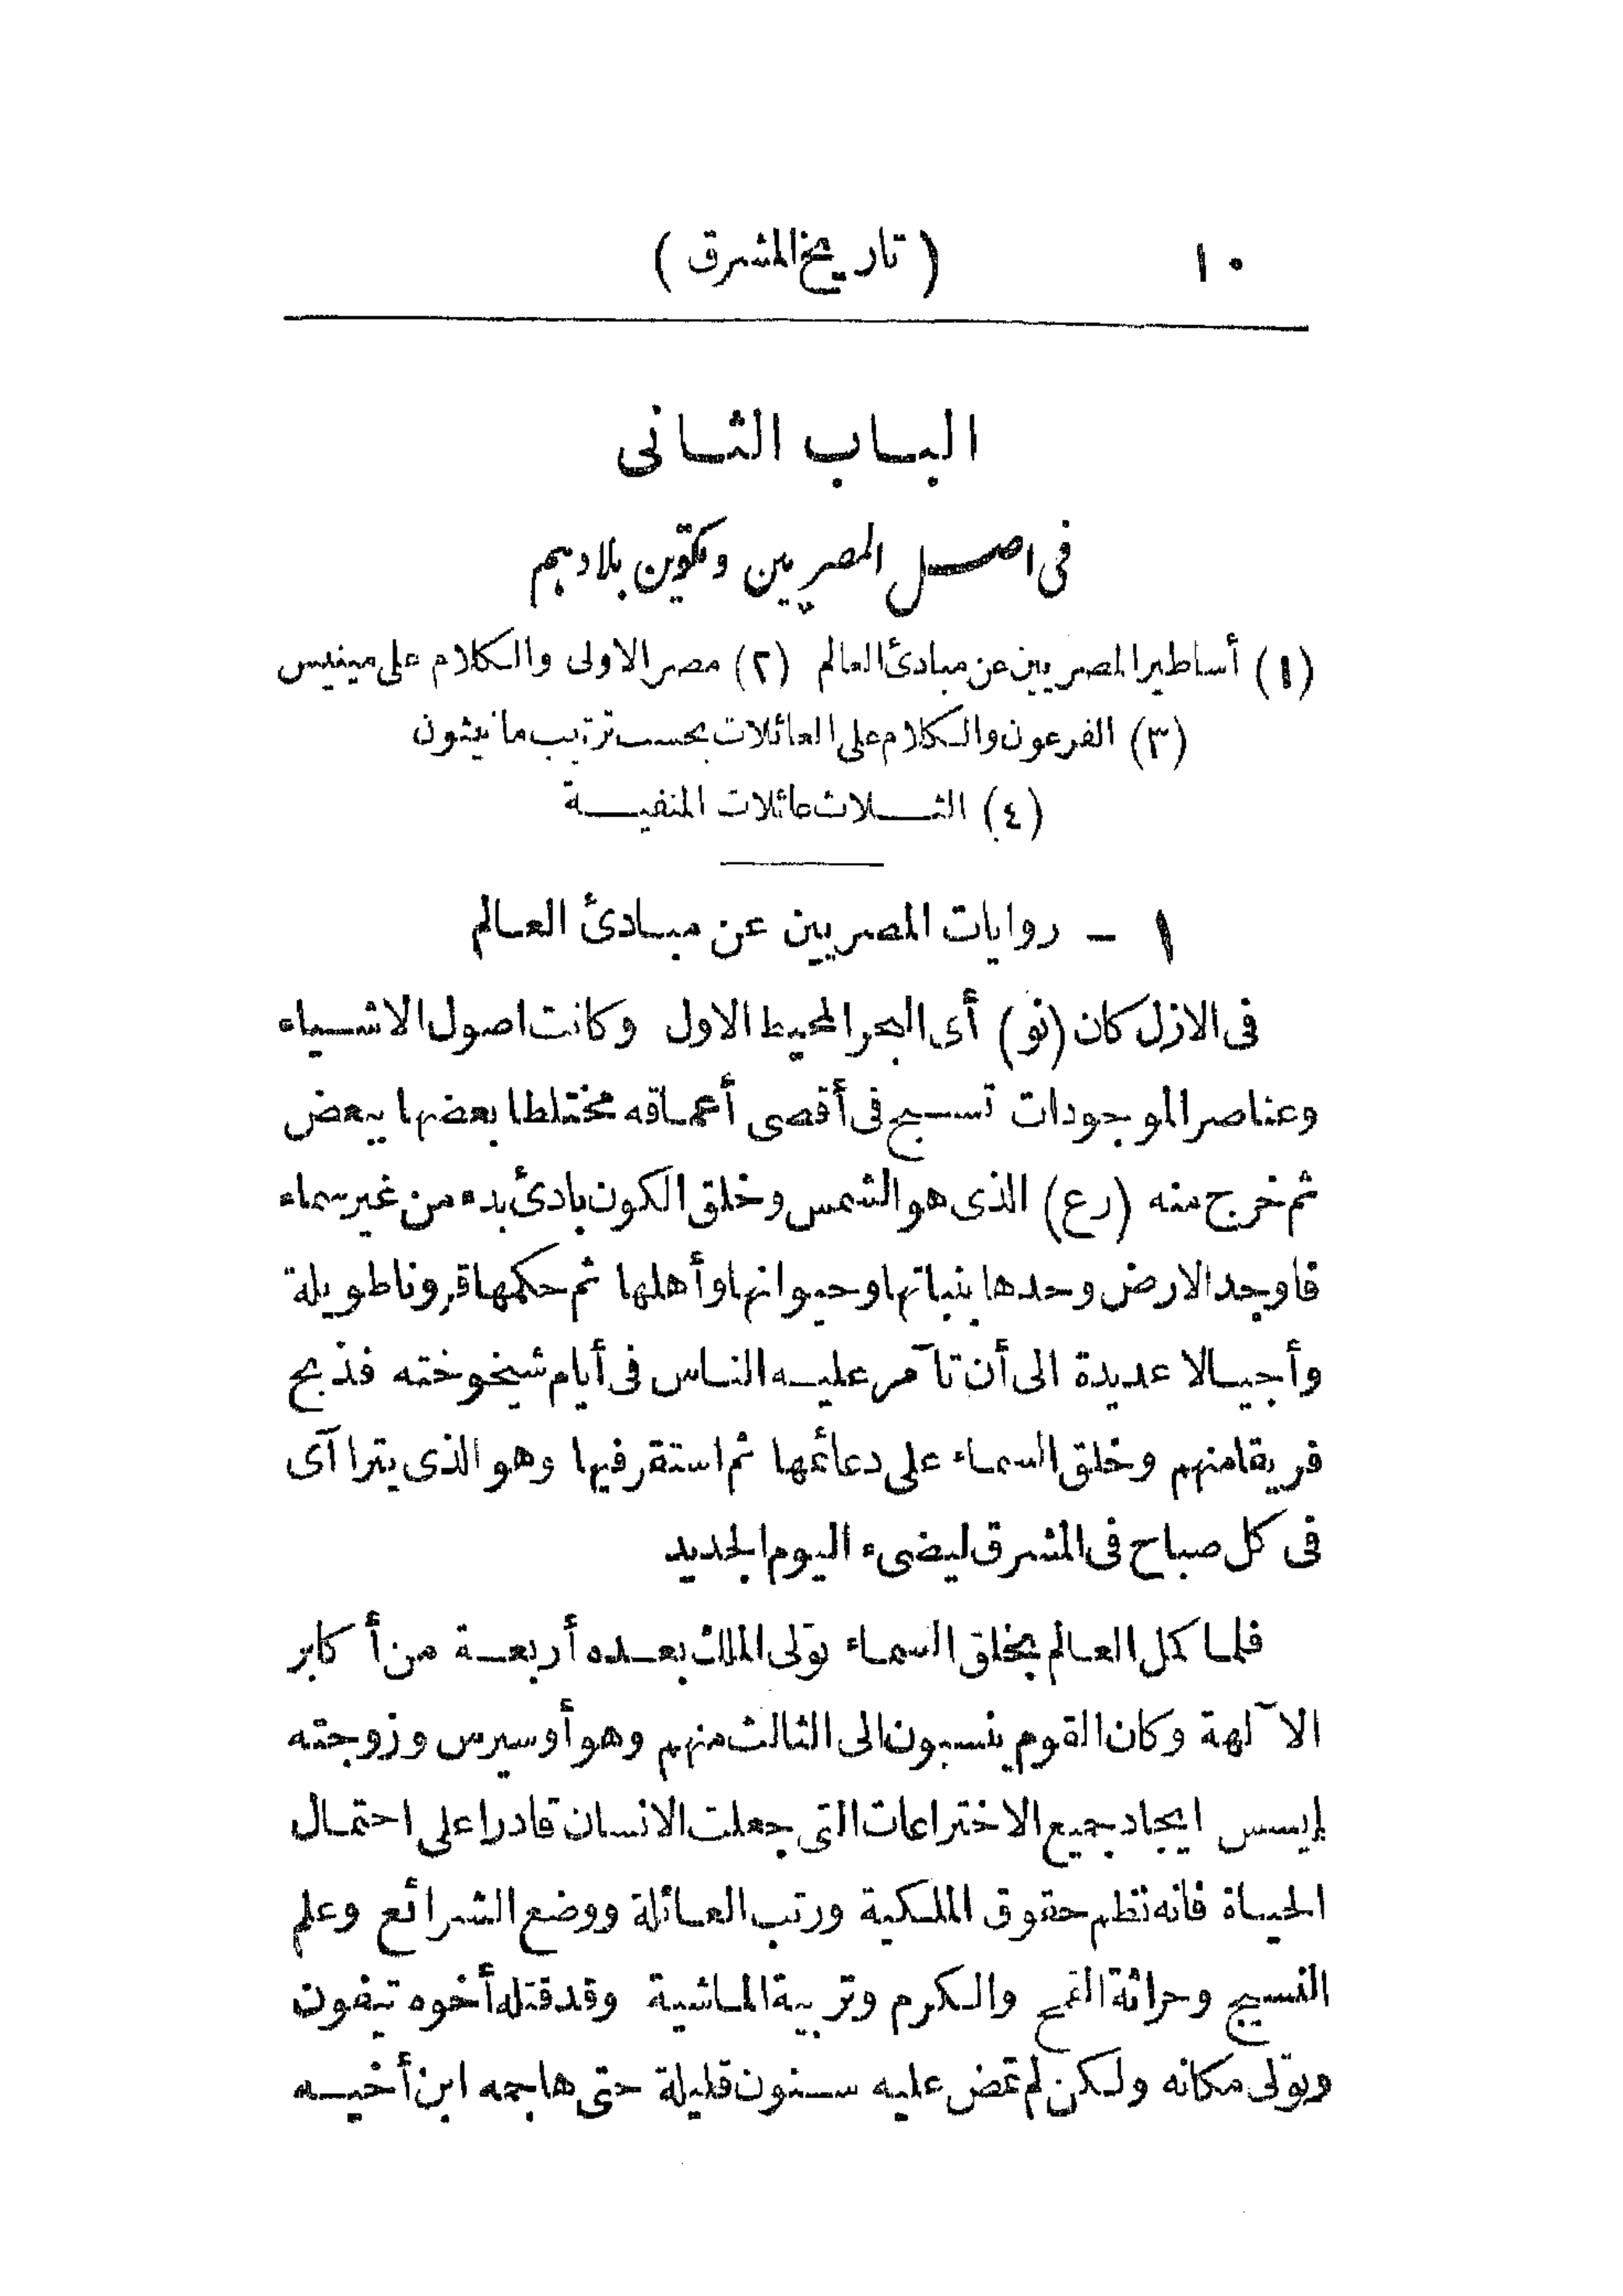 ١٠ ( تاريخ المشرق )
الباب الثانى
فى اصل المصريين وتكوين بلادهم
(١) أساطير المصريين عن مبادئ العالم (٢) مصر الاولى والكلام على مينيس
(٣) الفرعون والكلام على العائلات بحسب ترتيب مانيثون
(٤) الثلاث عائلات المنفية
١ - روايات المصريين عن مبادئ العالم
فى الازل كان (نو) أى البحر المحيط الاول وكانت اصول الاشياء
وعناصر الموجودات تسبح فى أقصى أعماقه مختلطا بعضها ببعض
ثم خرج منه (رع) الذى هو الشمس وخلق الكون بادئ بدء من غير سماء
فاوجد الارض وحدها بنباتها وحيوانها وأهلها ثم حكمها قرونا طويلة
وأجيالا عديدة الى أن تآمر عليه الناس فى أيام شيخوخته فذبح
فريقا منهم وخلق السماء على دعائمها ثم استقر فيها وهو الذى يتراآى
فى كل صباح فى المشرق ليضىء اليوم الجديد
فلما كمل العالم بخلق السماء تولى الملك بعده أربعة من أكابر
الآلهة وكان القوم ينسبون الى الثالث منهم وهو أوسيرس وزوجته
إيسس ايجاد جميع الاختراعات التى جعلت الانسان قادرا على احتمال
الحياة فانه نظم حقوق الملكية ورتب العائلة ووضع الشرائع وعلم
النسيج وحراثة القمح والكرم وتربية الماشية وقد قتله أخوه تيفون
وتولى مكانه ولكن لم تمض عليه سنون قليلة حتى هاجمه ابن أخيه